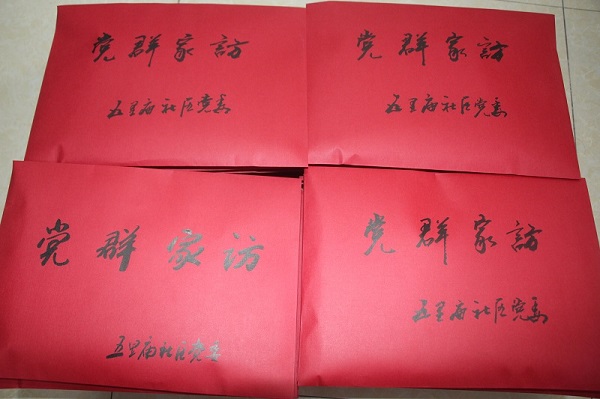 党群家访
五里庙社区党委
党群家访
五里庙社区党委
党群家访
五里庙社区党委
党群家访
五里庙社区党委